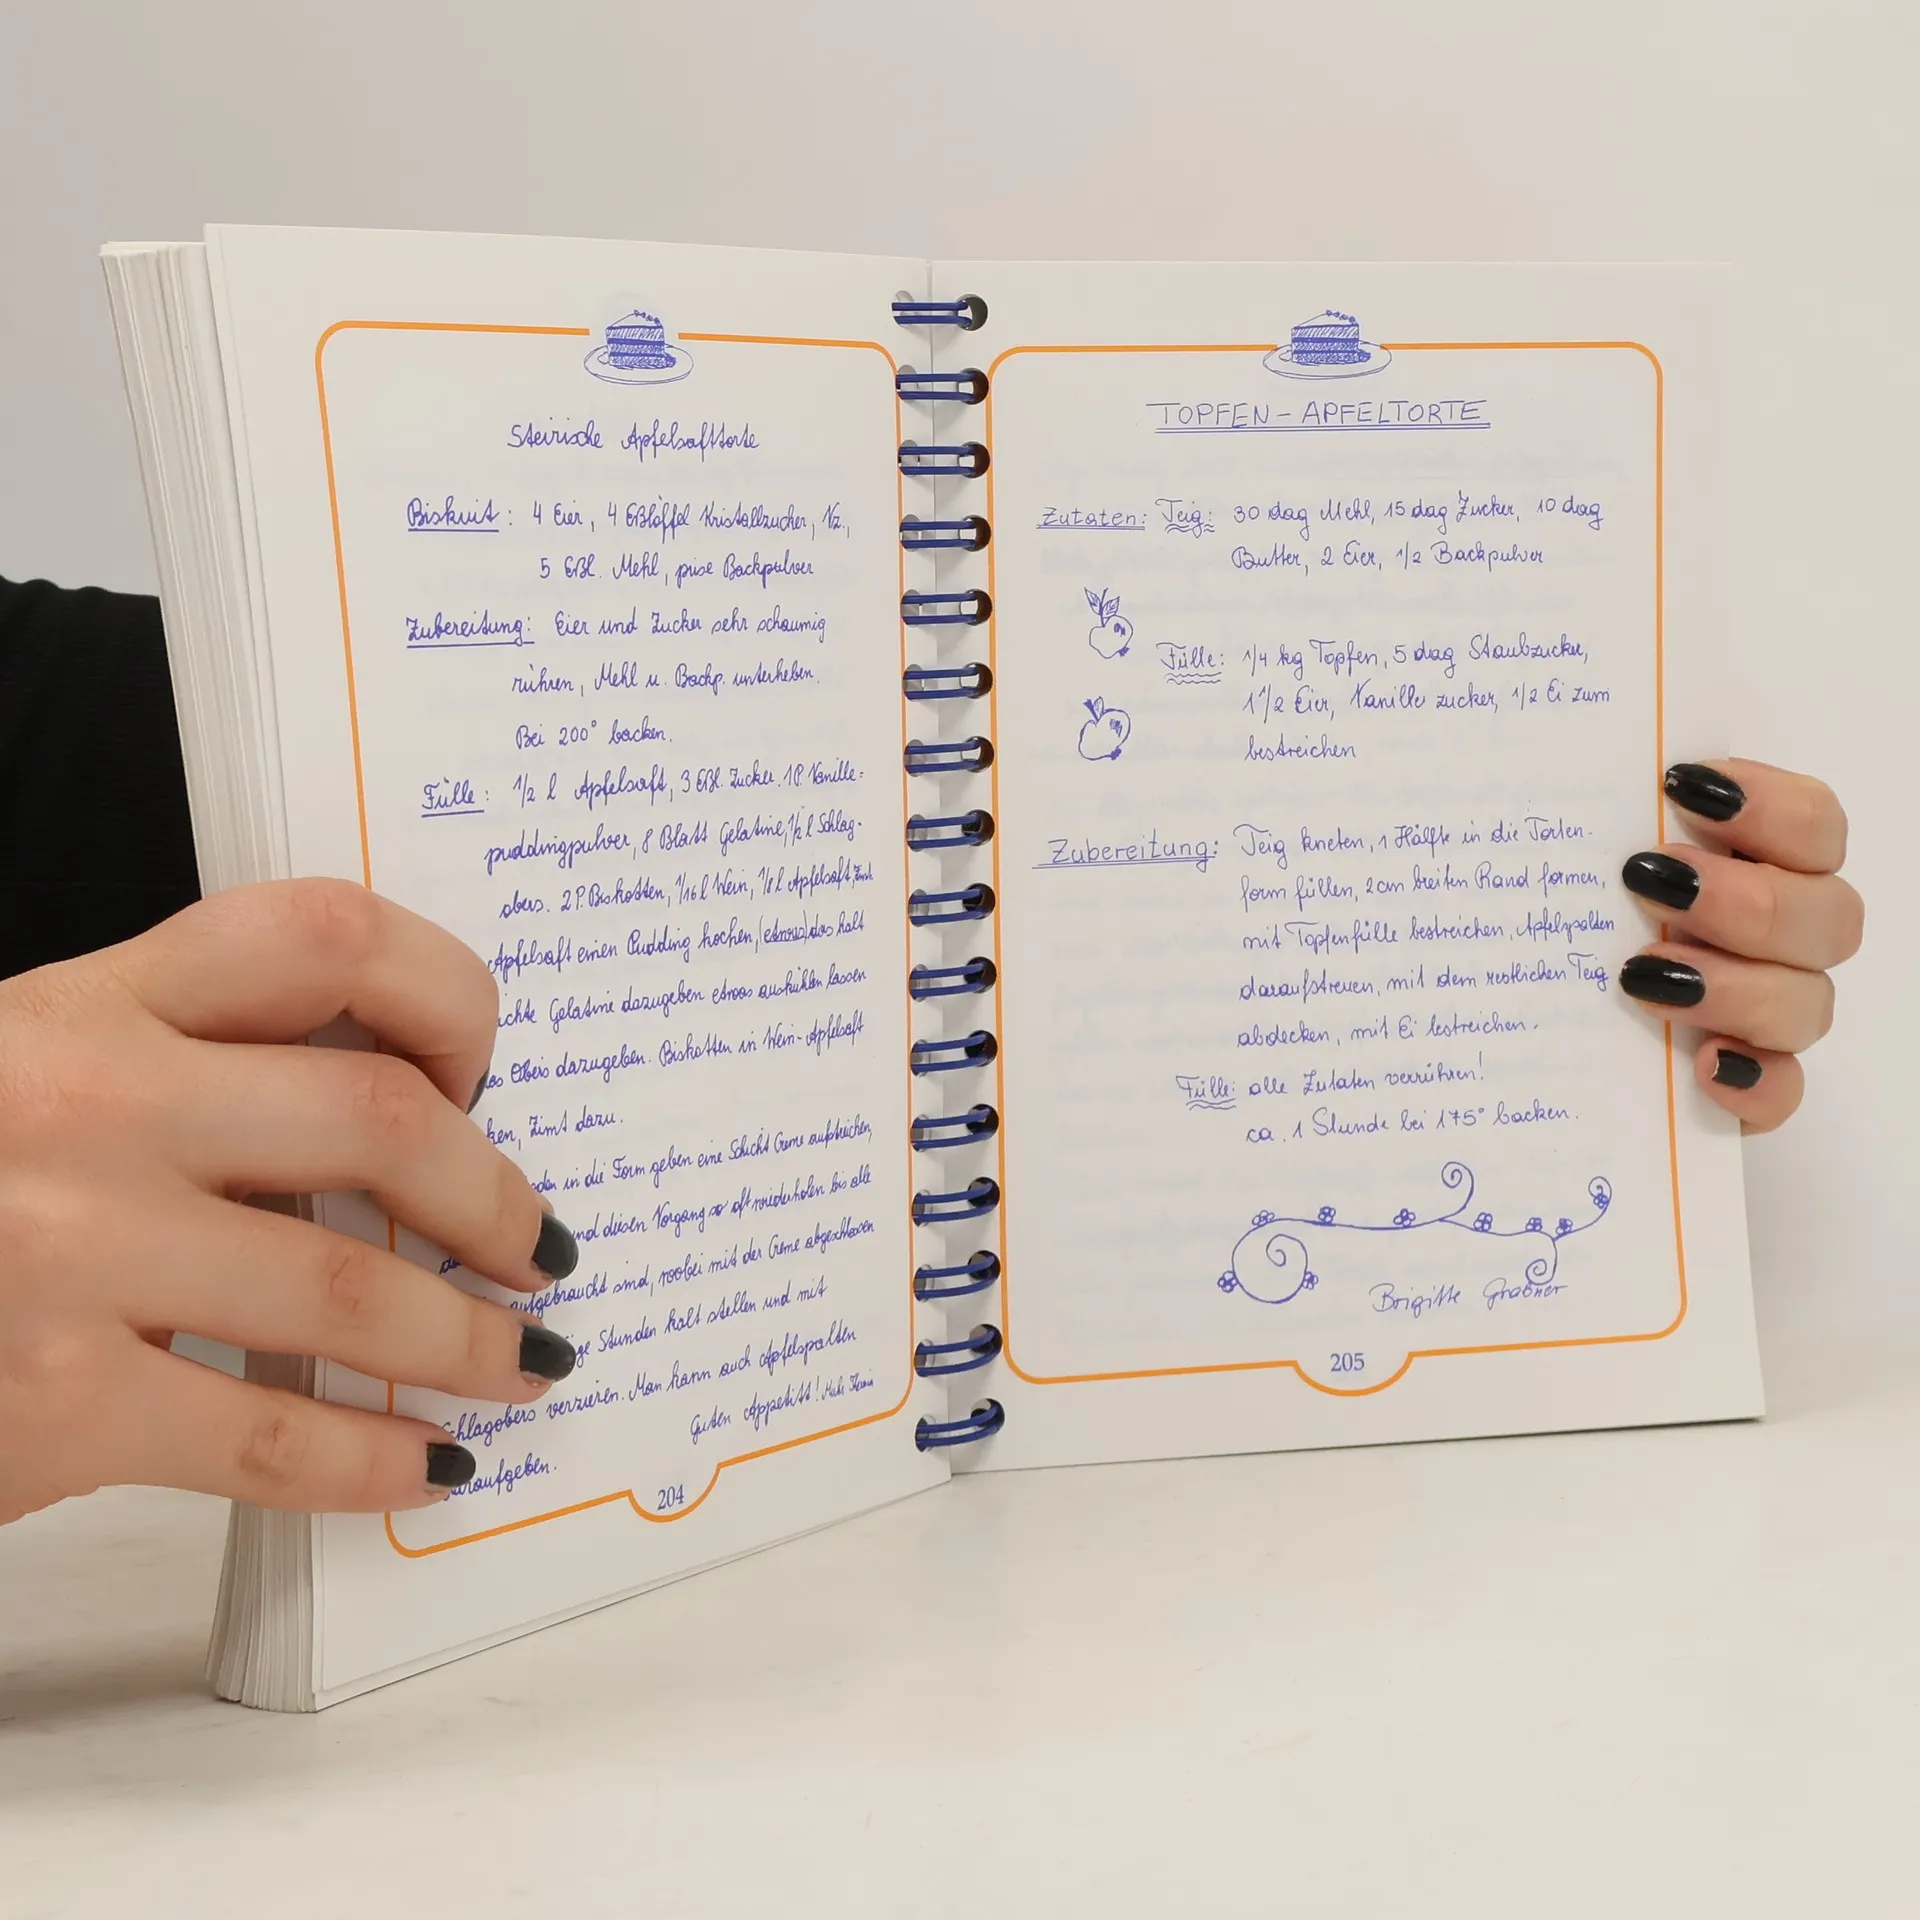 Steirische Apfelsafttorte
Biskuit: 4 Eier, 4 Eßlöffel Kristallzucker, Vz.,
5 Eßl. Mehl, prise Backpulver
Zubereitung: Eier und Zucker sehr schaumig
rühren, Mehl u. Backp. unterheben.
Bei 200° backen.
Fülle: 1/2 l Apfelsaft, 3 Eßl. Zucker. 1 P. Vanille=
puddingpulver, 8 Blatt Gelatine, 1/2 l Schlag-
obers. 2 P. Biskotten, 1/16 l Wein, 1/8 l Apfelsaft, Zimt
Apfelsaft einen Pudding kochen, (etwas) das kalt
Gelatine dazugeben etwas auskühlen lassen
Obers dazugeben. Biskotten in Wein-Apfelsaft
Zimt dazu.
in die Form geben eine Schicht Creme aufstreichen,
und diesen Vorgang so oft wiederholen bis alle
aufgebraucht sind, wobei mit der Creme abgeschlossen
Stunden kalt stellen und mit
Schlagobers verzieren. Man kann auch Apfelspalten
daraufgeben.
Guten Appetit!
204
TOPFEN-APFELTORTE
Zutaten: Teig: 30 dag Mehl, 15 dag Zucker, 10 dag
Butter, 2 Eier, 1/2 Backpulver
Fülle: 1/4 kg Topfen, 5 dag Staubzucker,
1 1/2 Eier, Vanille zucker, 1/2 Ei zum
bestreichen
Zubereitung: Teig kneten, 1 Hälfte in die Torten-
form füllen, 2 cm breiten Rand formen,
mit Topfenfülle bestreichen, Apfelspalten
daraufstreuen, mit dem restlichen Teig
abdecken, mit Ei bestreichen.
Fülle: alle Zutaten verrühren!
ca. 1 Stunde bei 175° backen.
Brigitte Grabner
205